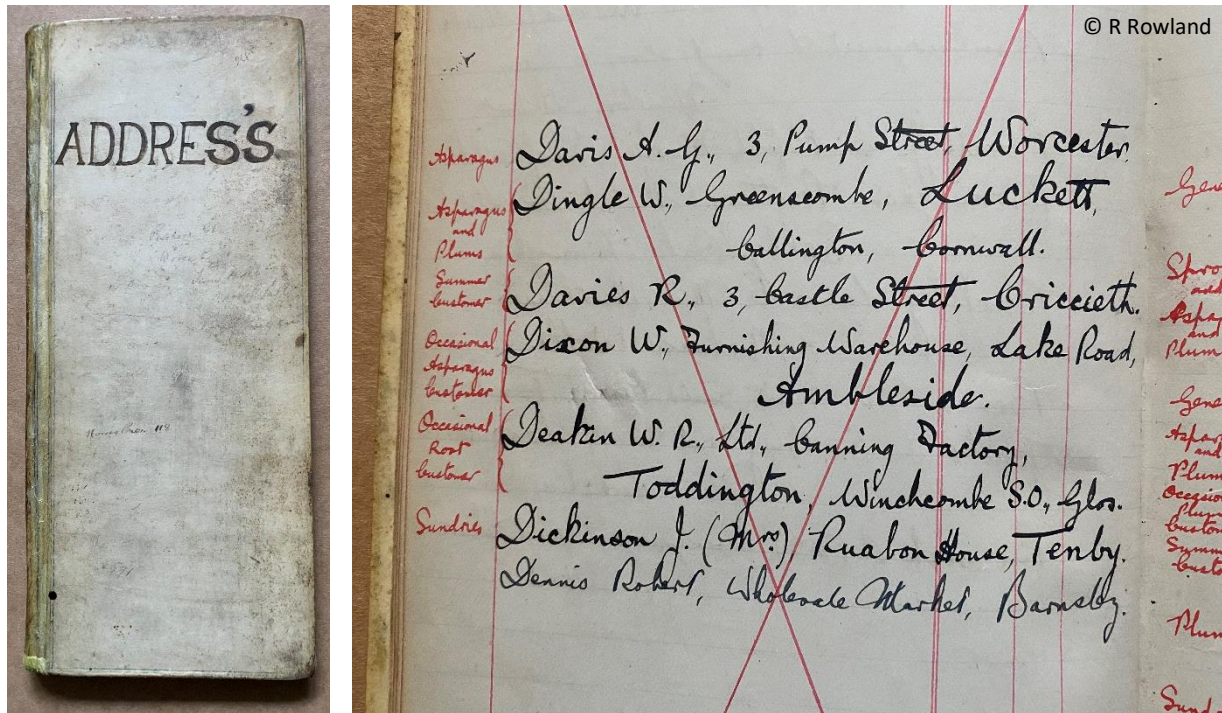 ADDRESS'S
© R Rowland
Asparagus Davis A. G., 3, Pump Street, Worcester.
Asparagus and Plums Dingle W., Greenscombe, Luckett,
Callington, Cornwall.
Summer Customer Davies R., 3, Castle Street, Criccieth.
Occasional Asparagus Customer Dixon W., Furnishing Warehouse, Lake Road,
Ambleside.
Occasional Root Customer Deakin W. R., Ltd., Canning Factory,
Toddington, Winchcombe S.O., Glos.
Sundries Dickinson J. (Mrs) Ruabon House, Tenby.
Dennis Robert, Wholesale Market, Barnsley.
Gene
and
Aspar
and
Plum
Gene
Aspar
and
Plum
Occasion
Plum
Custom
Summ
Custo
Plum
Sund